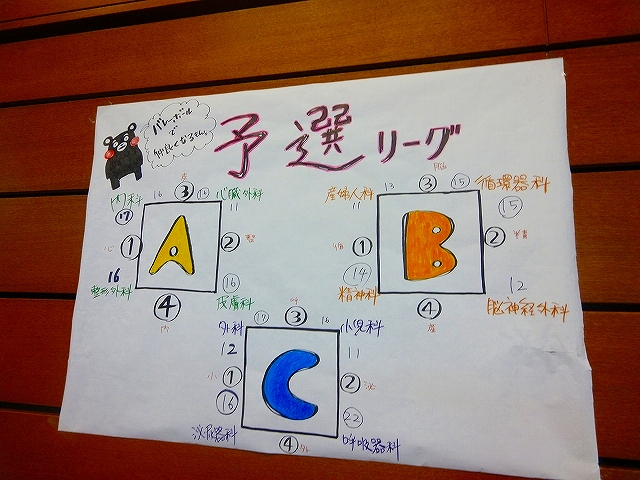 バレーボール
で
仲良くなるモン。
予選リーグ
皮
16 ③ ⑭
内科 心臓外科
⑰ 11
心 ① A ② 整
16 ⑯
整形外科 皮膚科
④
内
脳
13 ③ ⑮
産婦人科 循環器科
11 ⑮
循 ① B ②
⑭ 12
精神科 脳神経外科
④
産
呼
⑰ ③ 16
外科 小児科
12 11
小 ① C ② 泌
⑯ ㉒
泌尿器科 呼吸器科
④ 外